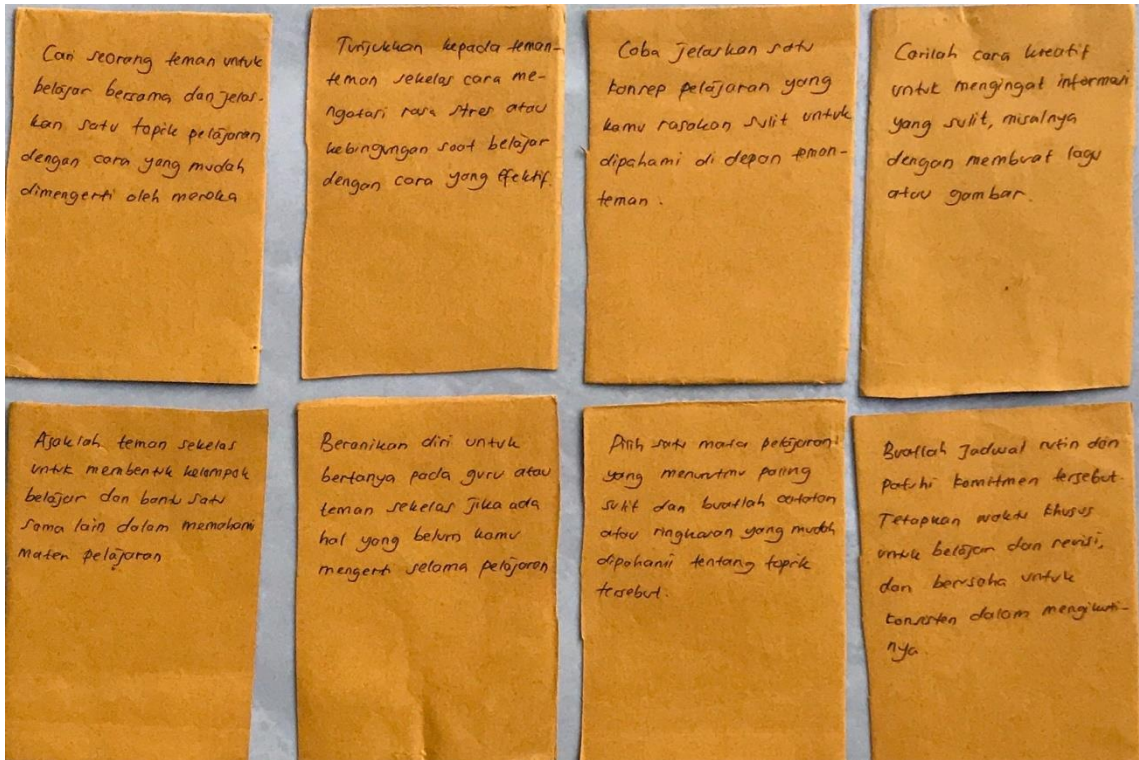 Cari seorang teman untuk
belajar bersama dan jelas-
kan satu topik pelajaran
dengan cara yang mudah
dimengerti oleh mereka
Tunjukkan kepada teman-
teman sekelas cara me-
ngatasi rasa stres atau
kebingungan saat belajar
dengan cara yang efektif.
Coba jelaskan satu
konsep pelajaran yang
kamu rasakan sulit untuk
dipahami di depan teman-
teman.
Carilah cara kreatif
untuk mengingat informasi
yang sulit, misalnya
dengan membuat lagu
atau gambar.
Ajaklah teman sekelas
untuk membentuk kelompok
belajar dan bantu satu
sama lain dalam memahami
materi pelajaran
Beranikan diri untuk
bertanya pada guru atau
teman sekelas jika ada
hal yang belum kamu
mengerti selama pelajaran
Pilih satu mata pelajaran
yang menurutmu paling
sulit dan buatlah catatan
atau ringkasan yang mudah
dipahami tentang topik
tersebut.
Buatlah Jadwal rutin dan
patuhi komitmen tersebut.
Tetapkan waktu khusus
untuk belajar dan revisi,
dan berusaha untuk
konsisten dalam mengikuti-
nya.